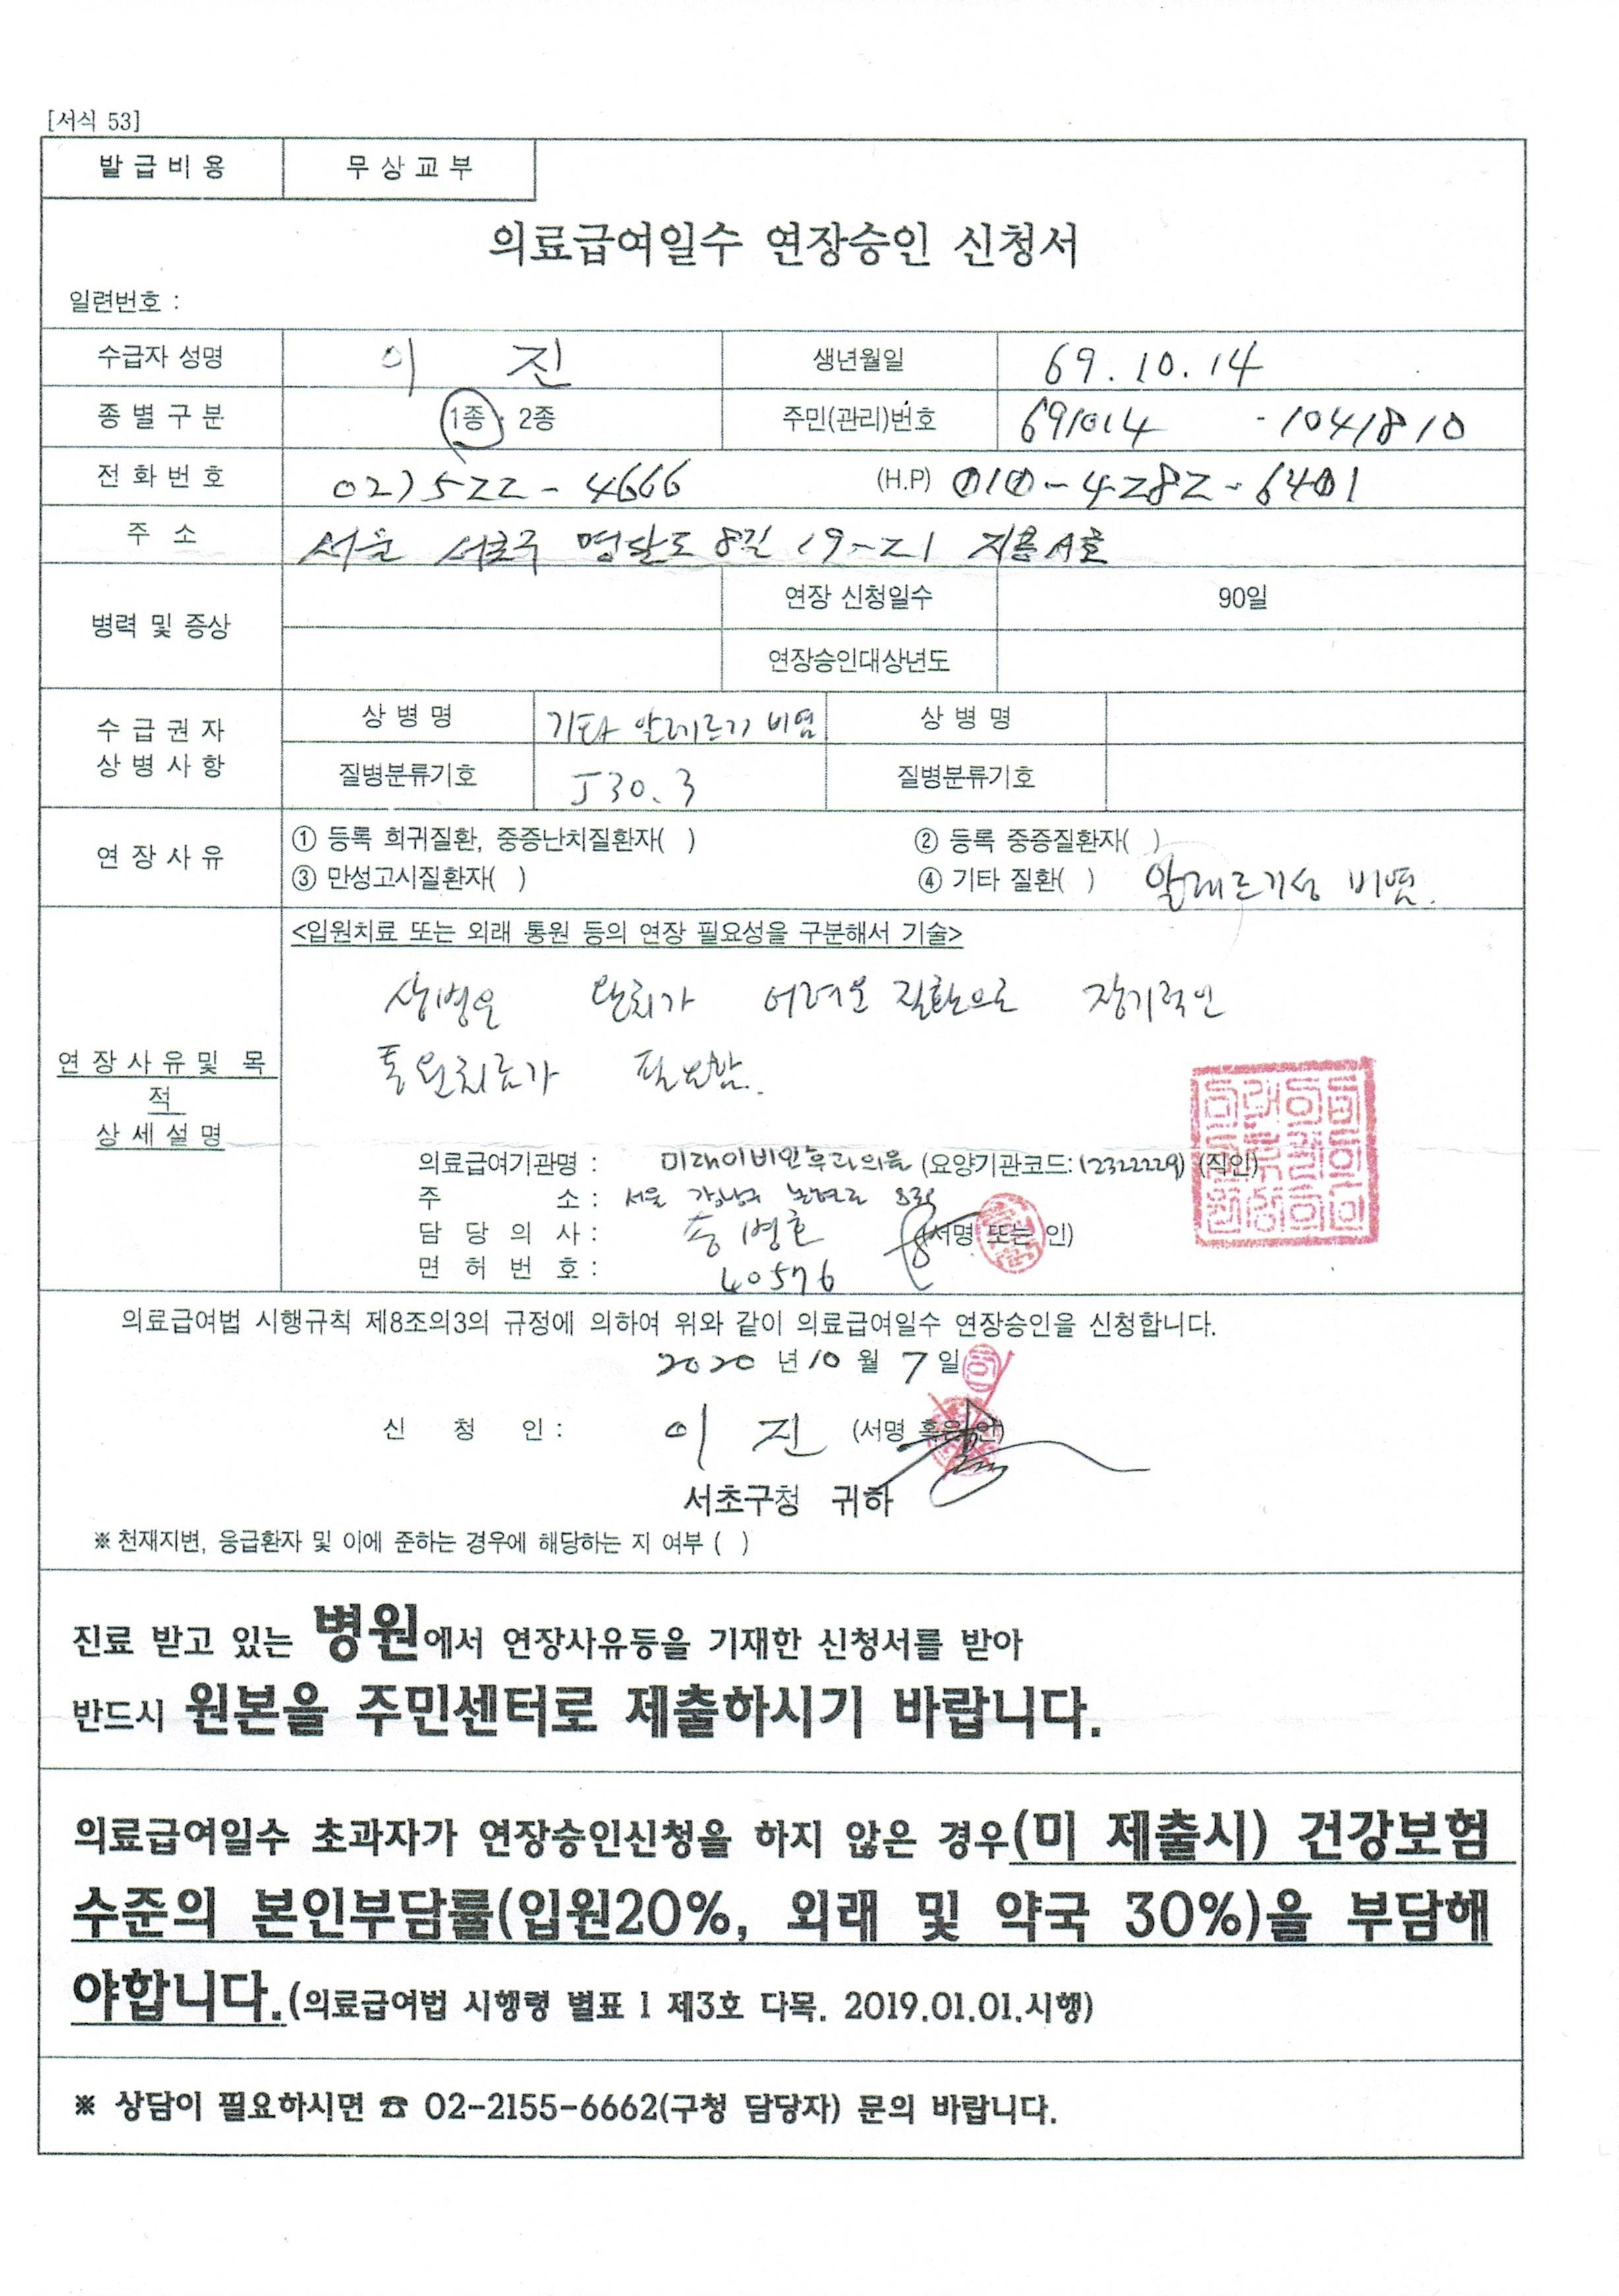 [서식 53]
발 급 비 용 무 상 교 부
의료급여일수 연장승인 신청서
일련번호 :
수급자 성명 이 진 생년월일 69. 10. 14
종 별 구 분 1종 · 2종 주민(관리)번호 691014 - 1041810
전 화 번 호 02) 522 - 4666 (H.P) 010 - 4282 - 6401
주 소 서울 서초구 명달로 8길 19-21 지층 A호
병력 및 증상 연장 신청일수 90일
연장승인대상년도
수 급 권 자 상 병 명 기타 알레르기 비염 상 병 명
상 병 사 항 질병분류기호 J30.3 질병분류기호
연 장 사 유 ① 등록 희귀질환, 중증난치질환자( ) ② 등록 중증질환자( )
③ 만성고시질환자( ) ④ 기타 질환( ) 알레르기성 비염.
<입원치료 또는 외래 통원 등의 연장 필요성을 구분해서 기술>
상병은 완치가 어려운 질환으로 장기적인
통원치료가 필요함.
연 장 사 유 및 목
적
상 세 설 명
의료급여기관명 : 미래이비인후과의원 (요양기관코드: 12322229) (직인)
주 소 : 서울 강남구 논현로 836
담 당 의 사 : 송병호 (서명 또는 인)
면 허 번 호 : 40576
의료급여법 시행규칙 제8조의3의 규정에 의하여 위와 같이 의료급여일수 연장승인을 신청합니다.
2020 년 10 월 7 일
신 청 인 : 이 진 (서명 혹은 인)
서초구청 귀하
※ 천재지변, 응급환자 및 이에 준하는 경우에 해당하는 지 여부 ( )
진료 받고 있는 병원에서 연장사유등을 기재한 신청서를 받아
반드시 원본을 주민센터로 제출하시기 바랍니다.
의료급여일수 초과자가 연장승인신청을 하지 않은 경우(미 제출시) 건강보험
수준의 본인부담률(입원20%, 외래 및 약국 30%)을 부담해
야합니다.(의료급여법 시행령 별표 1 제3호 다목. 2019.01.01.시행)
※ 상담이 필요하시면 ☎ 02-2155-6662(구청 담당자) 문의 바랍니다.